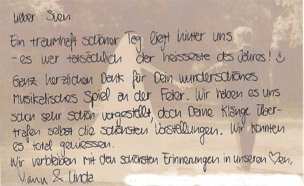 Lieber Sven
Ein traumhaft schöner Tag liegt hinter uns
- es war tatsächlich der heisseste des Jahres! ☺
Ganz herzlichen Dank für Dein wunderschönes
musikalisches Spiel an der Feier. Wir haben es uns
schon sehr schön vorgestellt, doch Deine Klänge über-
trafen selbst die schönsten Vorstellungen. Wir konnten
es total geniessen.
Wir verbleiben mit den schönsten Erinnerungen in unseren ♡en,
& Linda